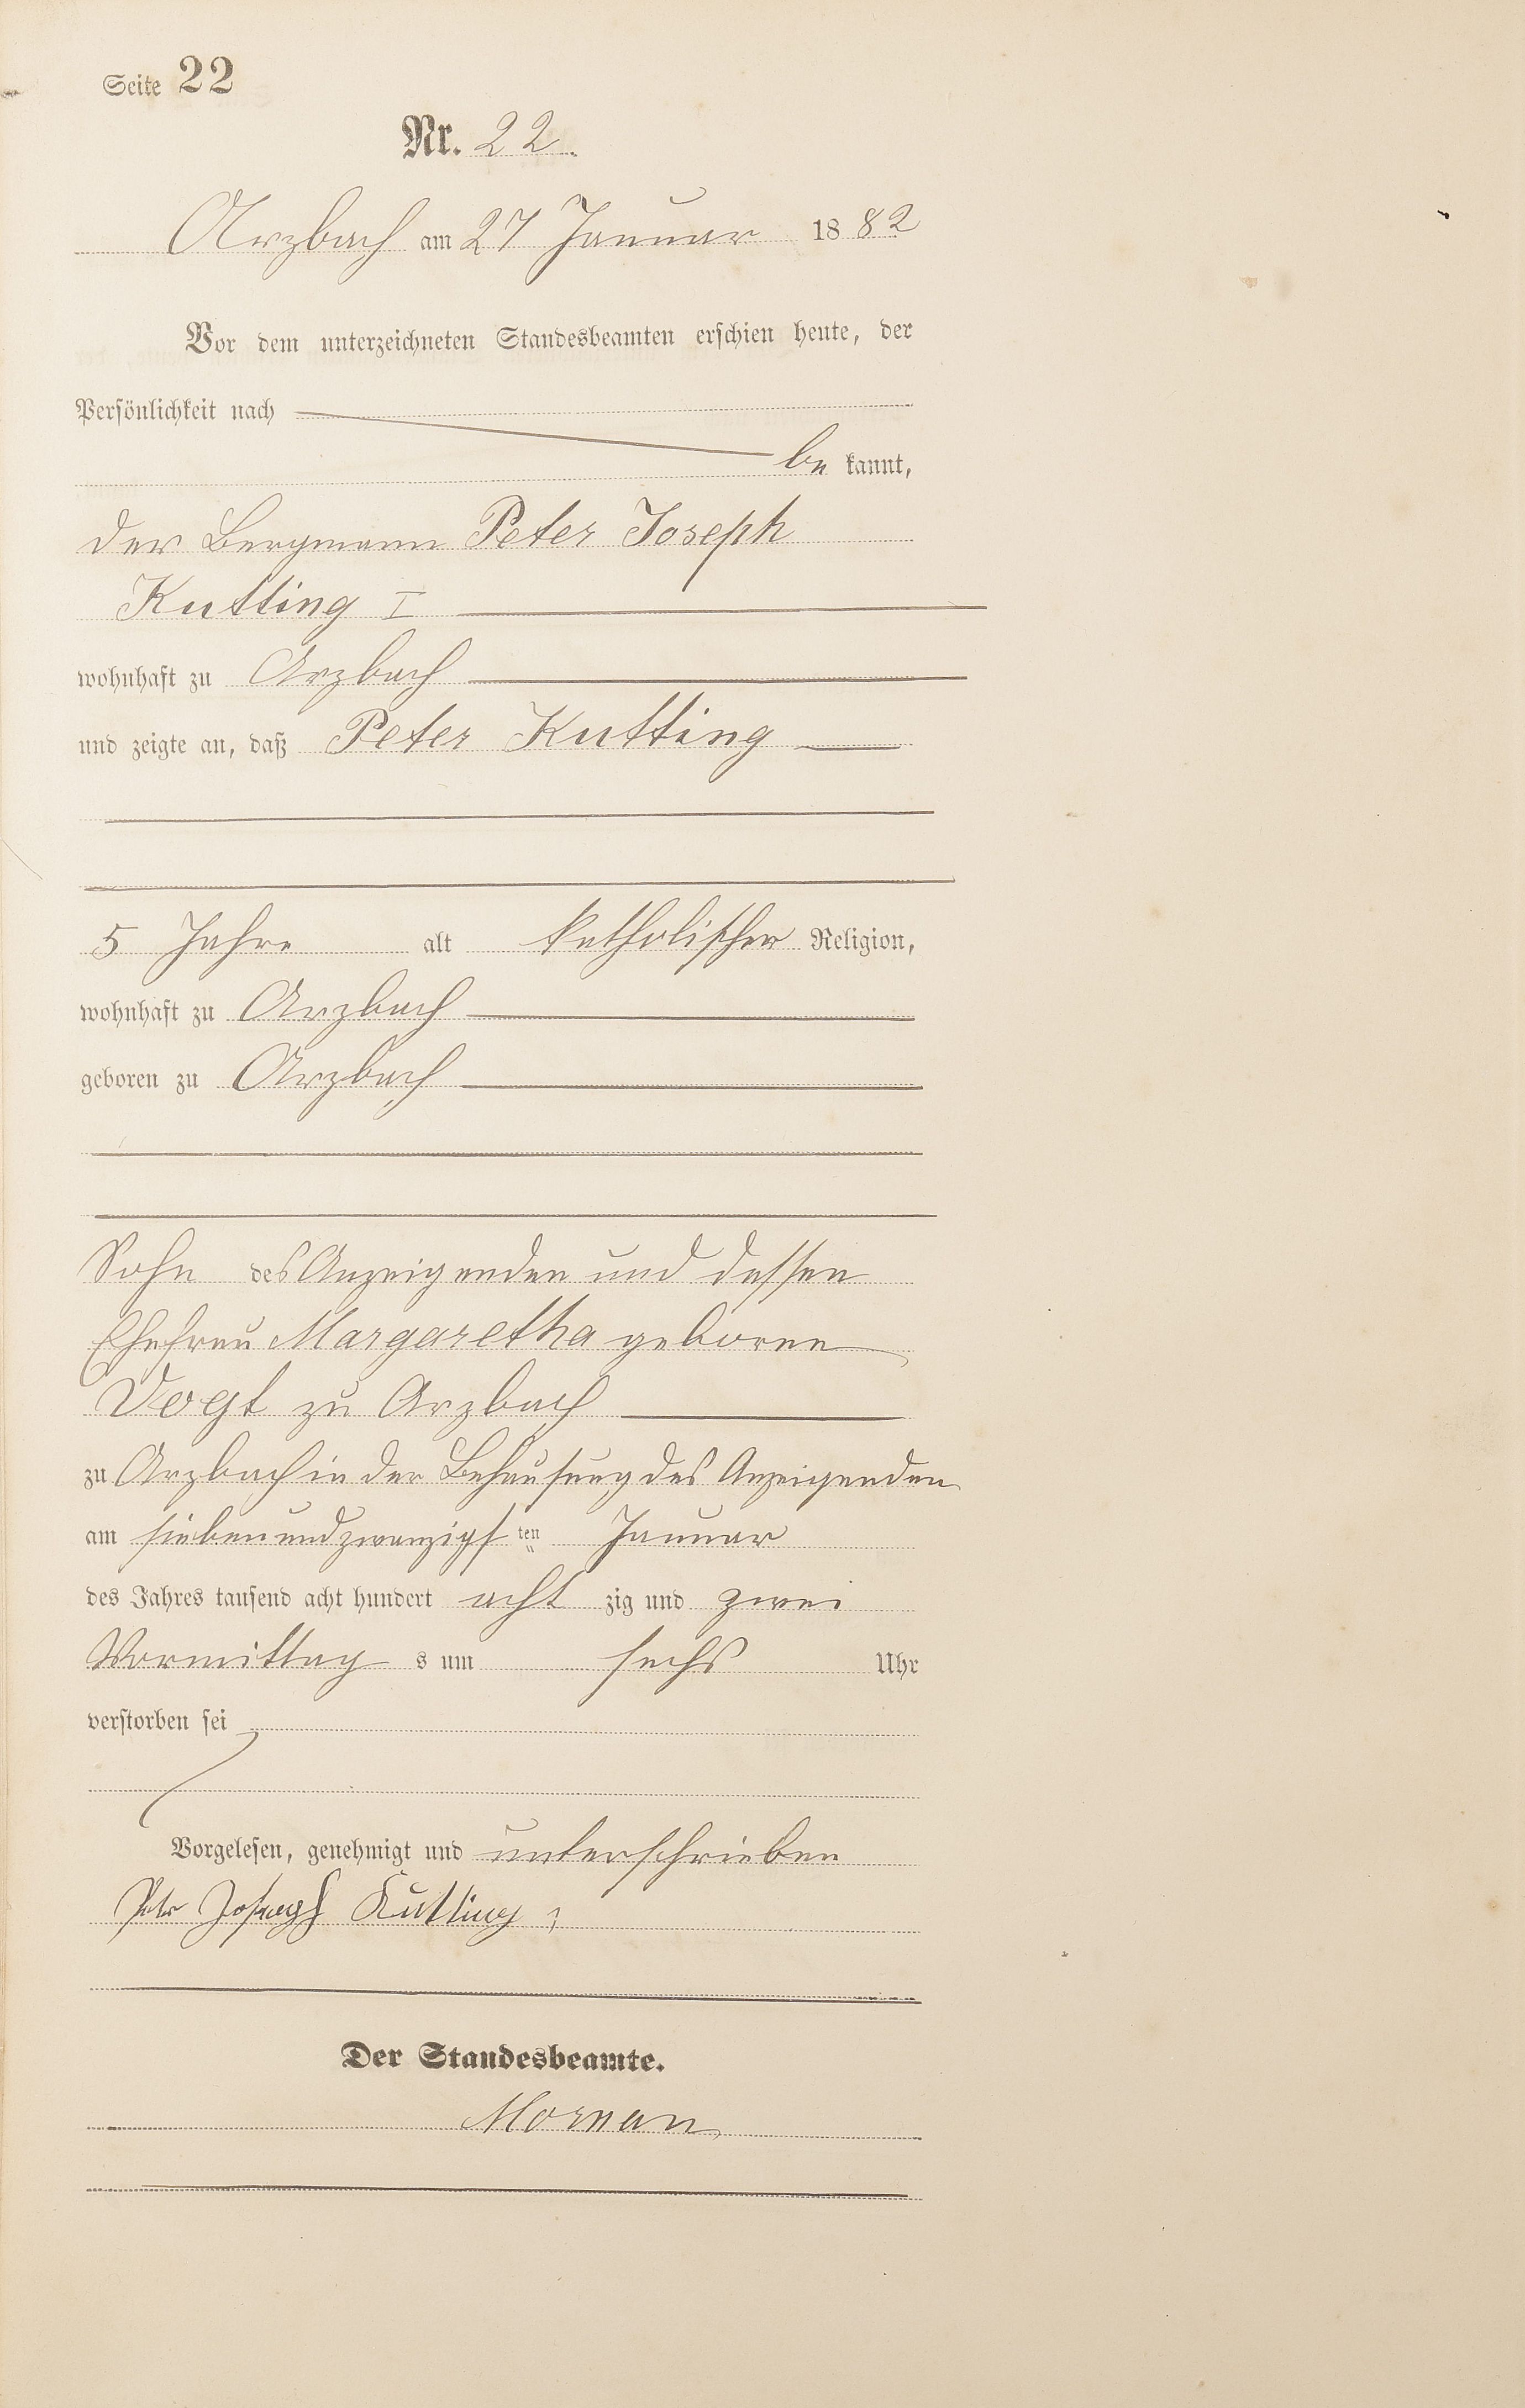 Seite 22
Nr. 22
Arzbach am 27 Januar 1882
Vor dem unterzeichneten Standesbeamten erschien heute, der
Persönlichkeit nach
be kannt,
der Bergmann Peter Joseph
Kutting I
wohnhaft zu Arzbach
und zeigte an, daß Peter Kutting
5 Jahre alt katholischer Religion,
wohnhaft zu Arzbach
geboren zu Arzbach
Sohn des Anzeigenden und dessen
Ehefrau Margaretha geboren
Vogt zu Arzbach
zu Arzbach in der Behausung des Anzeigenden
am siebenundzwanzigsten Januar
des Jahres tausend acht hundert acht zig und zwei
Vormittag s um sechs Uhr
verstorben sei
Vorgelesen, genehmigt und unterschrieben
Peter Joseph Kutting
Der Standesbeamte.